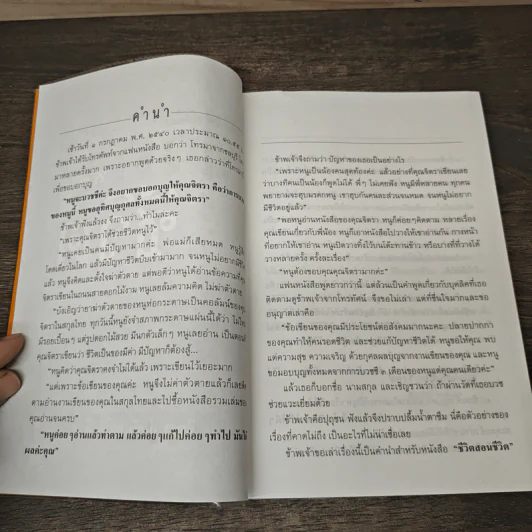 คำนำ
เช้าวันที่ ๑ กรกฎาคม พ.ศ. ๒๕๔๐ เวลาประมาณ
ข้าพเจ้าได้รับโทรศัพท์จากแฟนหนังสือ บอกว่า โทรมาจากชลบุรี
มาหลายครั้งมาก เพราะอยากพูดด้วยจริงๆ เธอกล่าวว่าที่
เพื่อขอบอกบุญ
"หนูจะบวชชีค่ะ จึงอยากขอบอกบุญให้คุณจิตรา คือว่า
ของหนูนี้ หนูขออุทิศบุญกุศลทั้งหมดนี้ให้คุณจิตรา"
ข้าพเจ้าฟังแล้วงง จึงถามว่า...ทำไมล่ะคะ
"เพราะคุณจิตราได้ช่วยชีวิตหนูไว้"
"หนูเคยเป็นคนมีปัญหามากค่ะ พ่อแม่ก็เสียหมด หนู
โดดเดี่ยวในโลก แล้วมีปัญหาชีวิตบีบเข้ามามาก จนหนูไม่อยากมี
แล้ว หนูจึงคิดและตั้งใจฆ่าตัวตาย แต่พอดีว่าหนูได้อ่านข้อความ
จิตราเขียนในถนนสายดอกไม้งาม หนูเลยล้มความคิด ไม่ฆ่าตัวตาย
"บังเอิญว่ายาฆ่าตัวตายของหนูห่อกระดาษเป็นคอลัมน์ของ
จิตราในสกุลไทย ทุกวันนี้หนูยังจำสภาพกระดาษแผ่นนี้ได้ว่า
มีรอยเปื้อนๆ แต่รูปดอกไม้สวย มันกตัวเล็กๆ หนูเลยอ่าน เป็นตอนที่
คุณจิตราเขียนว่า ชีวิตเป็นของมีค่า มีปัญหาก็ต้องสู้...
"หนูคิดว่าคุณจิตราคงจำไม่ได้แล้ว เพราะเขียนไว้เยอะมาก
"แต่เพราะข้อเขียนของคุณค่ะ หนูจึงไม่ฆ่าตัวตายแล้วก็เลย
ตามอ่านงานเขียนของคุณในสกุลไทยและไปซื้อหนังสือรวมเล่มของ
คุณอ่านจนครบ"
"หนูค่อยๆ อ่านแล้วทำตาม แล้วค่อยๆ แก้ไปค่อยๆ ทำไป มัน
ผลค่ะคุณ"
ข้าพเจ้าจึงถามว่า ปัญหาของเธอเป็นอย่างไร
"เพราะหนูเป็นน้องคนสุดท้องค่ะ แล้วอย่างที่คุณจิตราเขียนเลย
ว่าบางทีคนเป็นน้องก็พูดไม่ได้ พี่ๆ ไม่เคยฟัง หนูมีพี่หลายคน ทุกคน
พยายามจะฮุบมรดกหนู เขาฮุบกันคนละส่วนจนหมด จนหนูไม่อยาก
มีชีวิตอยู่แล้ว"
"พอหนูอ่านหนังสือของคุณจิตรา หนูก็ค่อยๆ คิดตาม หลายเรื่อง
คุณเขียนเกี่ยวกับพี่น้อง หนูก็เอาหนังสือไปวางให้เขาอ่านกัน กางหน้า
ที่อยากให้เขาอ่าน หนูเปิดวางทิ้งไว้บนโต๊ะทานข้าว หรือบางทีที่วางได้
วางหลายครั้ง ครั้งละเรื่อง"
"หนูต้องขอบคุณคุณจิตรามากค่ะ"
แฟนหนังสือพูดยาวกว่านี้ แต่ล้วนเป็นคำพูดเกี่ยวกับบุคคลที่เธอ
ติดตามดูข้าพเจ้าจากโทรทัศน์ จึงขอไม่เล่า แต่ที่ชื่นใจมากและขอ
อนุญาตเล่าคือ
"ข้อเขียนของคุณมีประโยชน์ต่อสังคมมากนะคะ...ปลายปากกา
ของคุณทำให้คนรอดชีวิต และช่วยแก้ปัญหาชีวิตได้ หนูขอให้คุณ พบ
แต่ความสุข ความเจริญ ด้วยกุศลผลบุญจากงานเขียนของคุณ และหนู
ขอมอบบุญทั้งหมดจากการบวชชี ๒ เดือนของหนูแด่คุณคนเดียวค่ะ"
แล้วเธอก็บอกชื่อ นามสกุล และเชิญชวนว่า ถ้าผ่านวัดที่เธอบวช
ช่วยแวะเยี่ยมด้วย
ข้าพเจ้าคือปุถุชน ฟังแล้วจึงปราบปลื้มน้ำตาซึม นี่คือตัวอย่างของ
เรื่องที่คาดไม่ถึง เป็นอะไรที่ไม่น่าเชื่อเลย
ข้าพเจ้าขอเล่าเรื่องนี้เป็นคำนำสำหรับหนังสือ "ชีวิตสอนชีวิต"